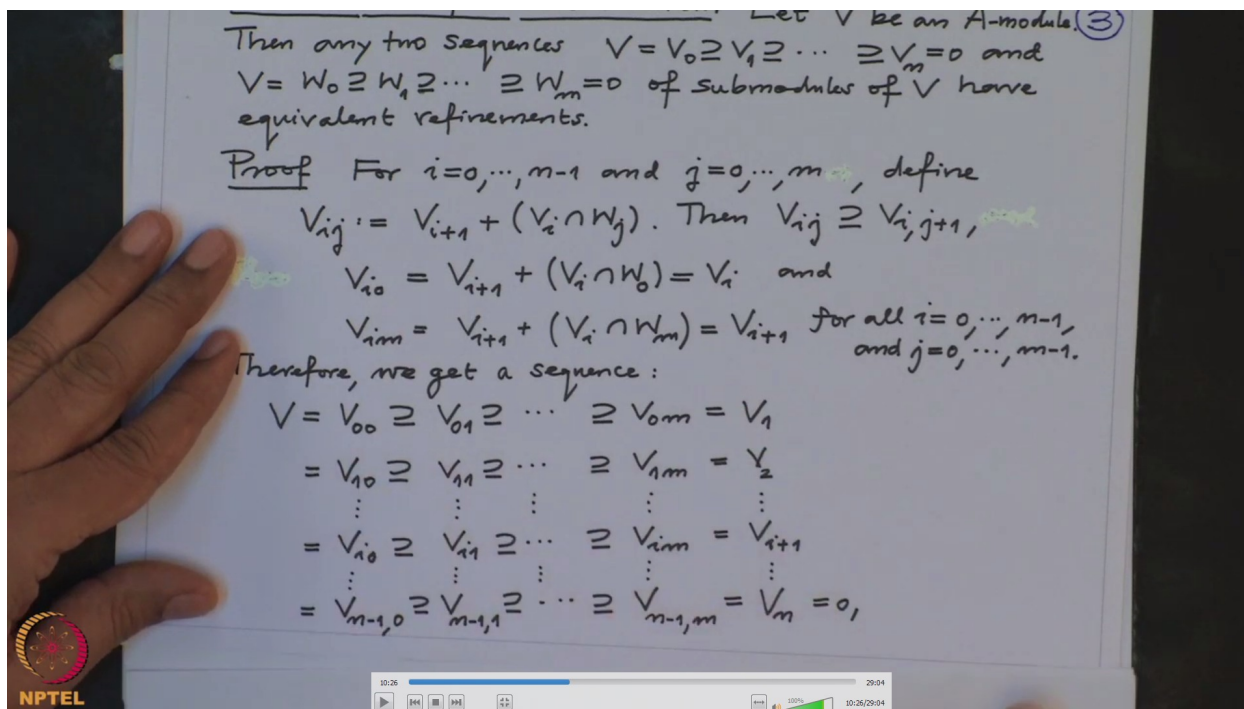 Let V be an A-module. (3)
Then any two sequences V = V₀ ⊇ V₁ ⊇ ⋯ ⊇ Vₙ = 0 and
V = W₀ ⊇ W₁ ⊇ ⋯ ⊇ Wₘ = 0 of submodules of V have
equivalent refinements.
Proof For i = 0, ⋯, n-1 and j = 0, ⋯, m , define
Vᵢⱼ := Vᵢ₊₁ + (Vᵢ ∩ Wⱼ). Then Vᵢⱼ ⊇ Vᵢ,ⱼ₊₁,
Vᵢ₀ = Vᵢ₊₁ + (Vᵢ ∩ W₀) = Vᵢ and
Vᵢₘ = Vᵢ₊₁ + (Vᵢ ∩ Wₘ) = Vᵢ₊₁ for all i = 0, ⋯, n-1,
and j = 0, ⋯, m-1.
Therefore, we get a sequence :
V = V₀₀ ⊇ V₀₁ ⊇ ⋯ ⊇ V₀ₘ = V₁
= V₁₀ ⊇ V₁₁ ⊇ ⋯ ⊇ V₁ₘ = V₂
⋮ ⋮ ⋮ ⋮ ⋮
= Vᵢ₀ ⊇ Vᵢ₁ ⊇ ⋯ ⊇ Vᵢₘ = Vᵢ₊₁
⋮ ⋮ ⋮ ⋮ ⋮
= Vₙ₋₁,₀ ⊇ Vₙ₋₁,₁ ⊇ ⋯ ⊇ Vₙ₋₁,ₘ = Vₙ = 0,
NPTEL
10:26 29:04
100% 10:26/29:04